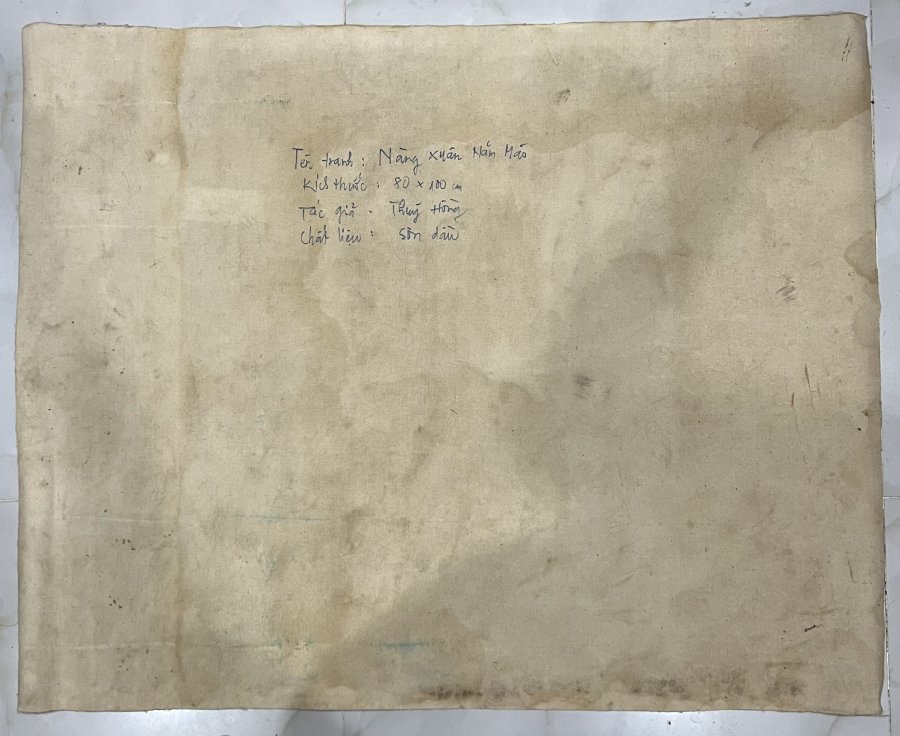 Tên tranh : Nàng xuân Mắn Mão
Kích thước : 80 x 100 cm
Tác giả : Thuý Hồng
Chất liệu : Sơn dầu